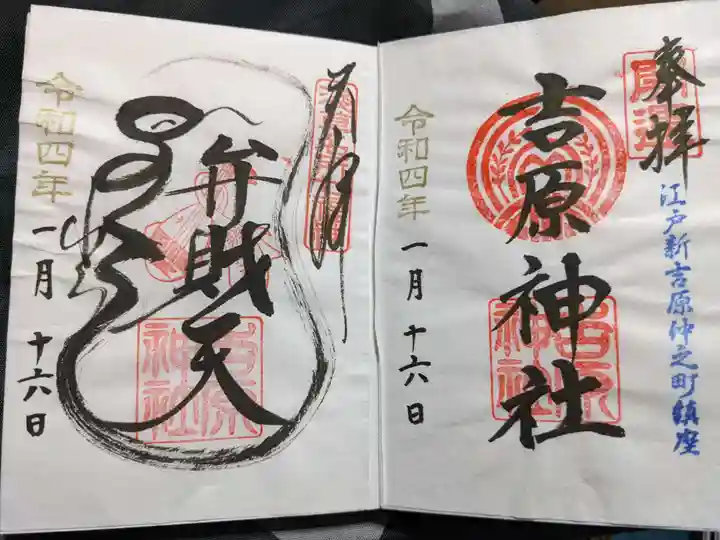 奉拝
開運
江戸新吉原仲之町鎮座
吉原神社
吉原神社
令和四年
一月十六日
弁財天
吉原神社
令和四年
一月十六日